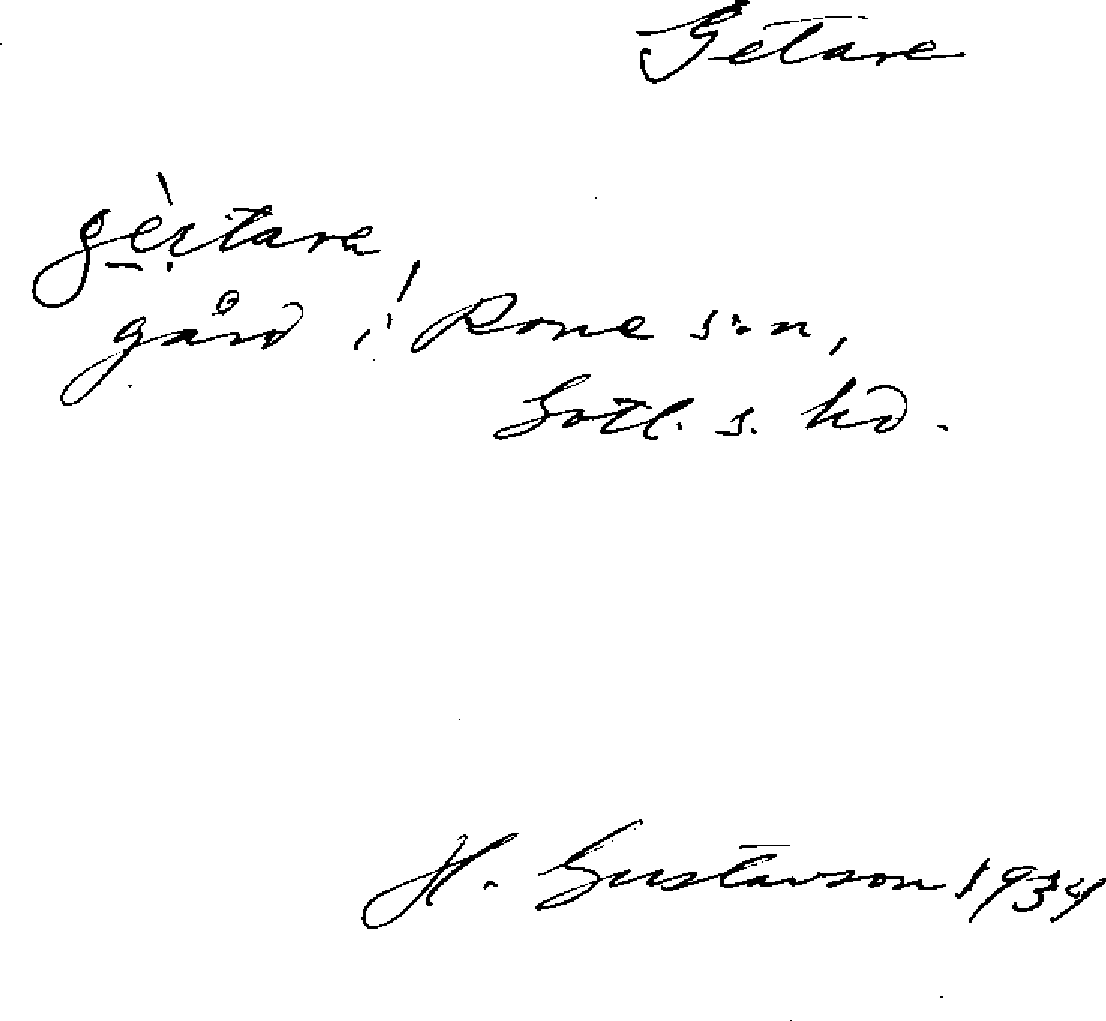 Getare
gèi̯tara
gård i Rone s:n,
Gotl. s. hd.
H. Gustavson 1934